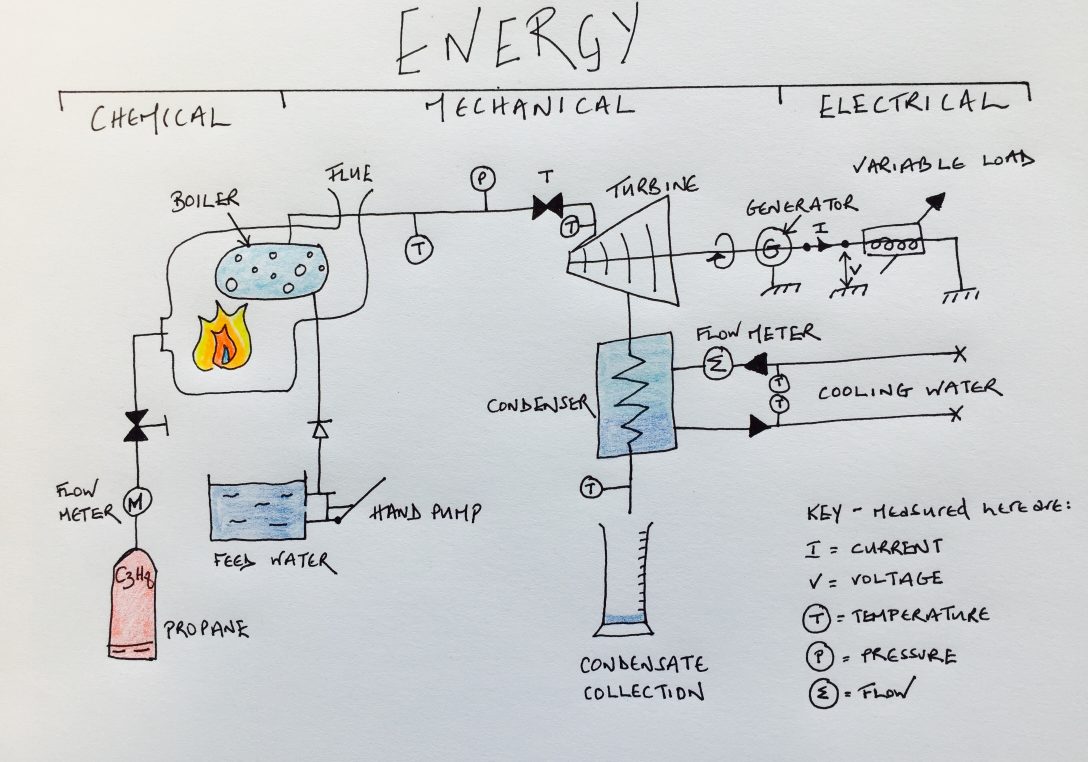 ENERGY
CHEMICAL
MECHANICAL
ELECTRICAL
VARIABLE LOAD
FLUE
BOILER
P
T
TURBINE
GENERATOR
T
T
G
I
V
FLOW METER
Σ
T
T
COOLING WATER
CONDENSER
FLOW
METER
M
HAND PUMP
FEED WATER
T
C3H8
PROPANE
CONDENSATE
COLLECTION
KEY - Measured here are:
I = CURRENT
V = VOLTAGE
T = TEMPERATURE
P = PRESSURE
Σ = FLOW